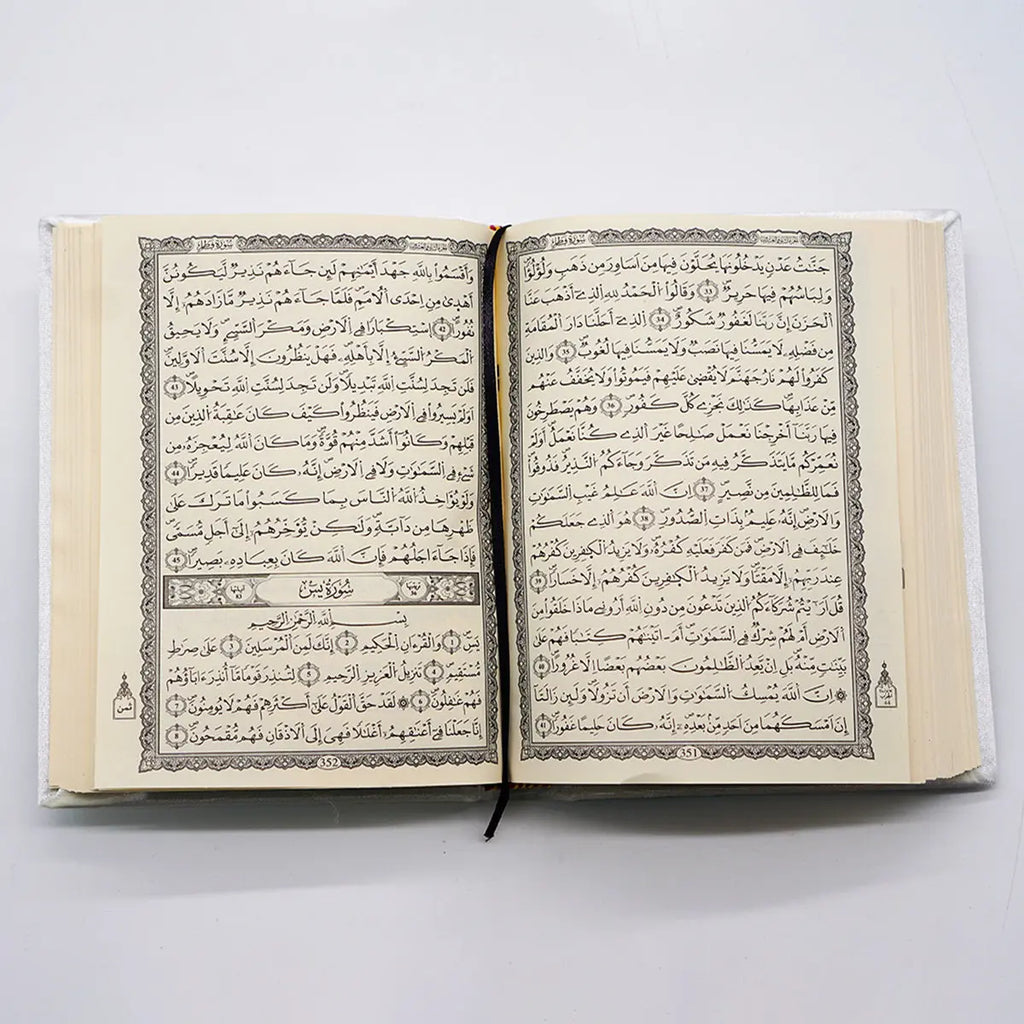 سُورَةُ فَاطِرٍ
جَنَّٰتُ عَدْنٖ يَدْخُلُونَهَا يُحَلَّوْنَ فِيهَا مِنَ اَسَاوِرَ مِن ذَهَبٖ وَلُؤْلُؤاٗ
وَلِبَاسُهُمْ فِيهَا حَرِيرٞ 33 وَقَالُوا۟ اُ۬لْحَمْدُ لِلهِ اِ۬لذِےٓ أَذْهَبَ عَنَّا
اَ۬لْحَزَنَ إِنَّ رَبَّنَا لَغَفُورٞ شَكُورٌ 34 اِ۬لذِےٓ أَحَلَّنَا دَارَ اَ۬لْمُقَامَةِ
مِن فَضْلِهِۦ لَا يَمَسُّنَا فِيهَا نَصَبٞ وَلَا يَمَسُّنَا فِيهَا لُغُوبٞ 35 وَالذِينَ
كَفَرُوا۟ لَهُمْ نَارُ جَهَنَّمَ لَا يُقْضَىٰ عَلَيْهِمْ فَيَمُوتُوا۟ وَلَا يُخَفَّفُ عَنْهُم
مِّنْ عَذَابِهَا كَذَٰلِكَ نَجْزِے كُلَّ كَفُورٖ 36 وَهُمْ يَصْطَرِخُونَ
فِيهَا رَبَّنَآ أَخْرِجْنَا نَعْمَلْ صَٰلِحاً غَيْرَ اَ۬لذِے كُنَّا نَعْمَلُ أَوَلَمْ
نُعَمِّرْكُم مَّا يَتَذَكَّرُ فِيهِ مَن تَذَكَّرَ وَجَآءَكُمُ اُ۬لنَّذِيرُ فَذُوقُوا۟
فَمَا لِلظَّٰلِمِينَ مِن نَّصِيرٍ 37 اِنَّ اَ۬للَّهَ عَٰلِمُ غَيْبِ اِ۬لسَّمَٰوَٰتِ
وَالَارْضِ إِنَّهُۥ عَلِيمُۢ بِذَاتِ اِ۬لصُّدُورِ 38 هُوَ اَ۬لذِے جَعَلَكُمْ
خَلَٰٓئِفَ فِے اِ۬لَارْضِ فَمَن كَفَرَ فَعَلَيْهِ كُفْرُهُۥ وَلَا يَزِيدُ اُ۬لْكٰ۪فِرِينَ كُفْرُهُمْ
عِندَ رَبِّهِمُۥٓ إِلَّا مَقْتاٗ وَلَا يَزِيدُ اُ۬لْكٰ۪فِرِينَ كُفْرُهُمُۥٓ إِلَّا خَسَاراٗ 39
قُلَ اَرَٰٓيْتُمْ شُرَكَآءَكُمُ اُ۬لذِينَ تَدْعُونَ مِن دُونِ اِ۬للَّهِ أَرُونِے مَاذَا خَلَقُوا۟ مِنَ
اَ۬لَارْضِ أَمْ لَهُمْ شِرْكٞ فِے اِ۬لسَّمَٰوَٰتِ أَمَ اٰتَيْنَٰهُمْ كِتَٰباٗ فَهُمْ عَلَىٰ
بَيِّنَٰتٖ مِّنْهُ بَلِ اِنْ يَّعِدُ اُ۬لظَّٰلِمُونَ بَعْضُهُم بَعْضاً اِلَّا غُرُوراً 40
۞ اِنَّ اَ۬للَّهَ يُمْسِكُ اُ۬لسَّمَٰوَٰتِ وَالَارْضَ أَن تَزُولَا وَلَئِن زَالَتَآ
إِنَ اَمْسَكَهُمَا مِنَ اَحَدٖ مِّنۢ بَعْدِهِۦٓ إِنَّهُۥ كَانَ حَلِيماً غَفُوراٗ 41
351
سُورَةُ فَاطِرٍ
وَأَقْسَمُوا۟ بِاللَّهِ جَهْدَ أَيْمَٰنِهِمْ لَئِن جَآءَهُمْ نَذِيرٞ لَّيَكُونُنَّ
أَهْدَىٰ مِنِ اِحْدَى اَ۬لُامَمِ فَلَمَّا جَآءَهُمْ نَذِيرٞ مَّا زَادَهُمُۥٓ إِلَّا
نُفُوراً 42 اِ۪سْتِكْبَاراٗ فِے اِ۬لَارْضِ وَمَكْرَ اَ۬لسَّيِّۓِ وَلَا يَحِيقُ
اُ۬لْمَكْرُ اُ۬لسَّيِّۓُ اِلَّا بِأَهْلِهِۦ فَهَلْ يَنظُرُونَ إِلَّا سُنَّتَ اَ۬لَاوَّلِينَ
فَلَن تَجِدَ لِسُنَّتِ اِ۬للَّهِ تَبْدِيلاٗ وَلَن تَجِدَ لِسُنَّتِ اِ۬للَّهِ تَحْوِيلاً 43
اَوَلَمْ يَسِيرُوا۟ فِے اِ۬لَارْضِ فَيَنظُرُوا۟ كَيْفَ كَانَ عَٰقِبَةُ اُ۬لذِينَ مِن
قَبْلِهِمْ وَكَانُوٓا۟ أَشَدَّ مِنْهُمْ قُوَّةٗ وَمَا كَانَ اَ۬للَّهُ لِيُعْجِزَهُۥ مِن
شَےْءٖ فِے اِ۬لسَّمَٰوَٰتِ وَلَا فِے اِ۬لَارْضِ إِنَّهُۥ كَانَ عَلِيماٗ قَدِيراٗ 44
وَلَوْ يُؤَاخِذُ اُ۬للَّهُ اُ۬لنَّاسَ بِمَا كَسَبُوا۟ مَا تَرَكَ عَلَىٰ
ظَهْرِهَا مِن دَآبَّةٖ وَلَٰكِنْ يُّؤَخِّرُهُمُۥٓ إِلَىٰٓ أَجَلٖ مُّسَمّىٗ
فَإِذَا جَآءَ اجَلُهُمْ فَإِنَّ اَ۬للَّهَ كَانَ بِعِبَادِهِۦ بَصِيراٗ 45
سُورَةُ يٓسٓ
بِسْمِ اللَّهِ الرَّحْمَٰنِ الرَّحِيمِ
يَسٓ 1 وَالْقُرْءَانِ اِ۬لْحَكِيمِ 2 إِنَّكَ لَمِنَ اَ۬لْمُرْسَلِينَ 3 عَلَىٰ صِرَٰطٖ
مُّسْتَقِيمٖ 4 تَنزِيلُ اُ۬لْعَزِيزِ اِ۬لرَّحِيمِ 5 لِتُنذِرَ قَوْماٗ مَّآ أُنذِرَ ءَابَآؤُهُمْ
فَهُمْ غَٰفِلُونَ 6 ۞ لَقَدْ حَقَّ اَ۬لْقَوْلُ عَلَىٰٓ أَكْثَرِهِمْ فَهُمْ لَا يُومِنُونَ 7
إِنَّا جَعَلْنَا فِےٓ أَعْنَٰقِهِمُۥٓ أَغْلَٰلاٗ فَهِىَ إِلَى اَ۬لَاذْقَانِ فَهُم مُّقْمَحُونَ 8
352
ثمن